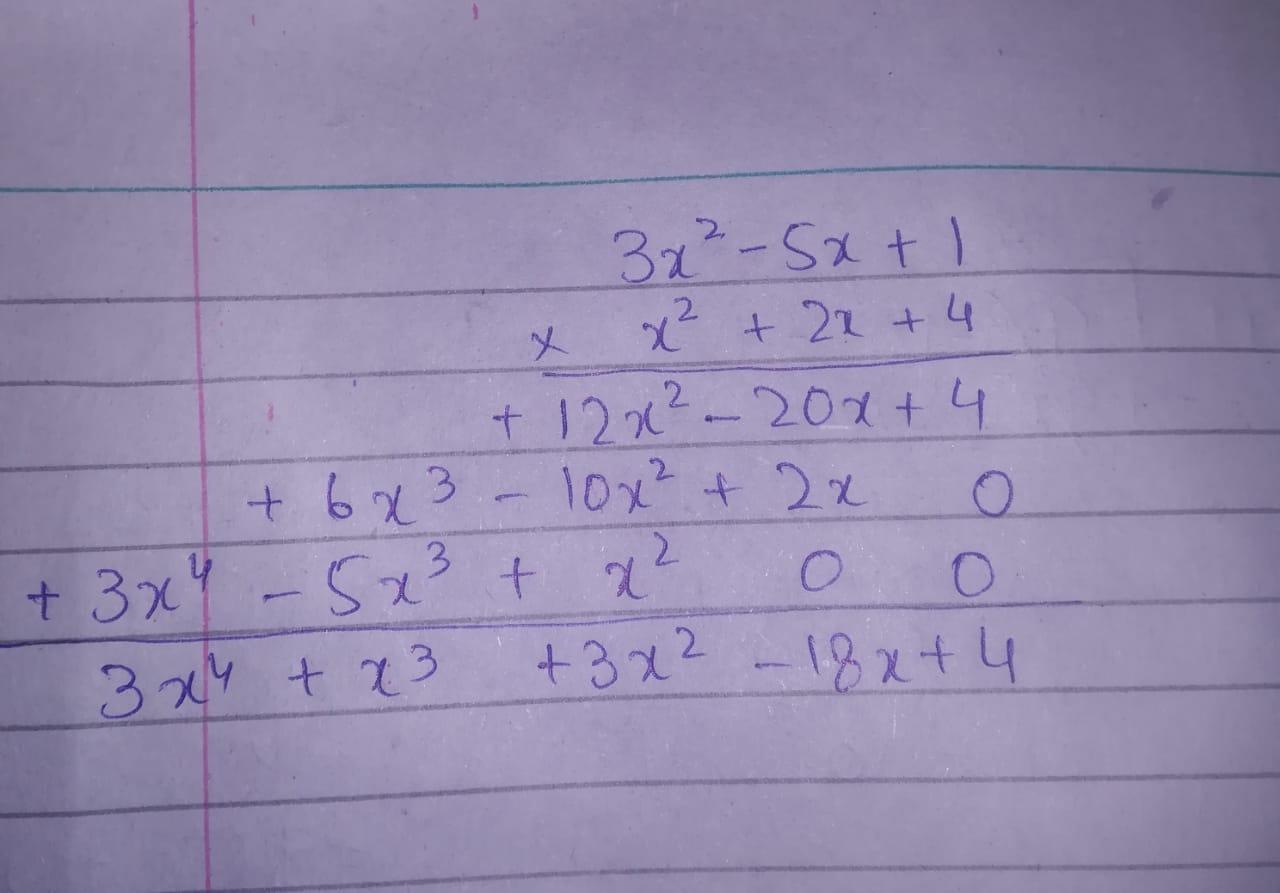 3x² - 5x + 1
× x² + 2x + 4
+ 12x² - 20x + 4
+ 6x³ - 10x² + 2x 0
+ 3x⁴ - 5x³ + x² 0 0
3x⁴ + x³ + 3x² - 18x + 4